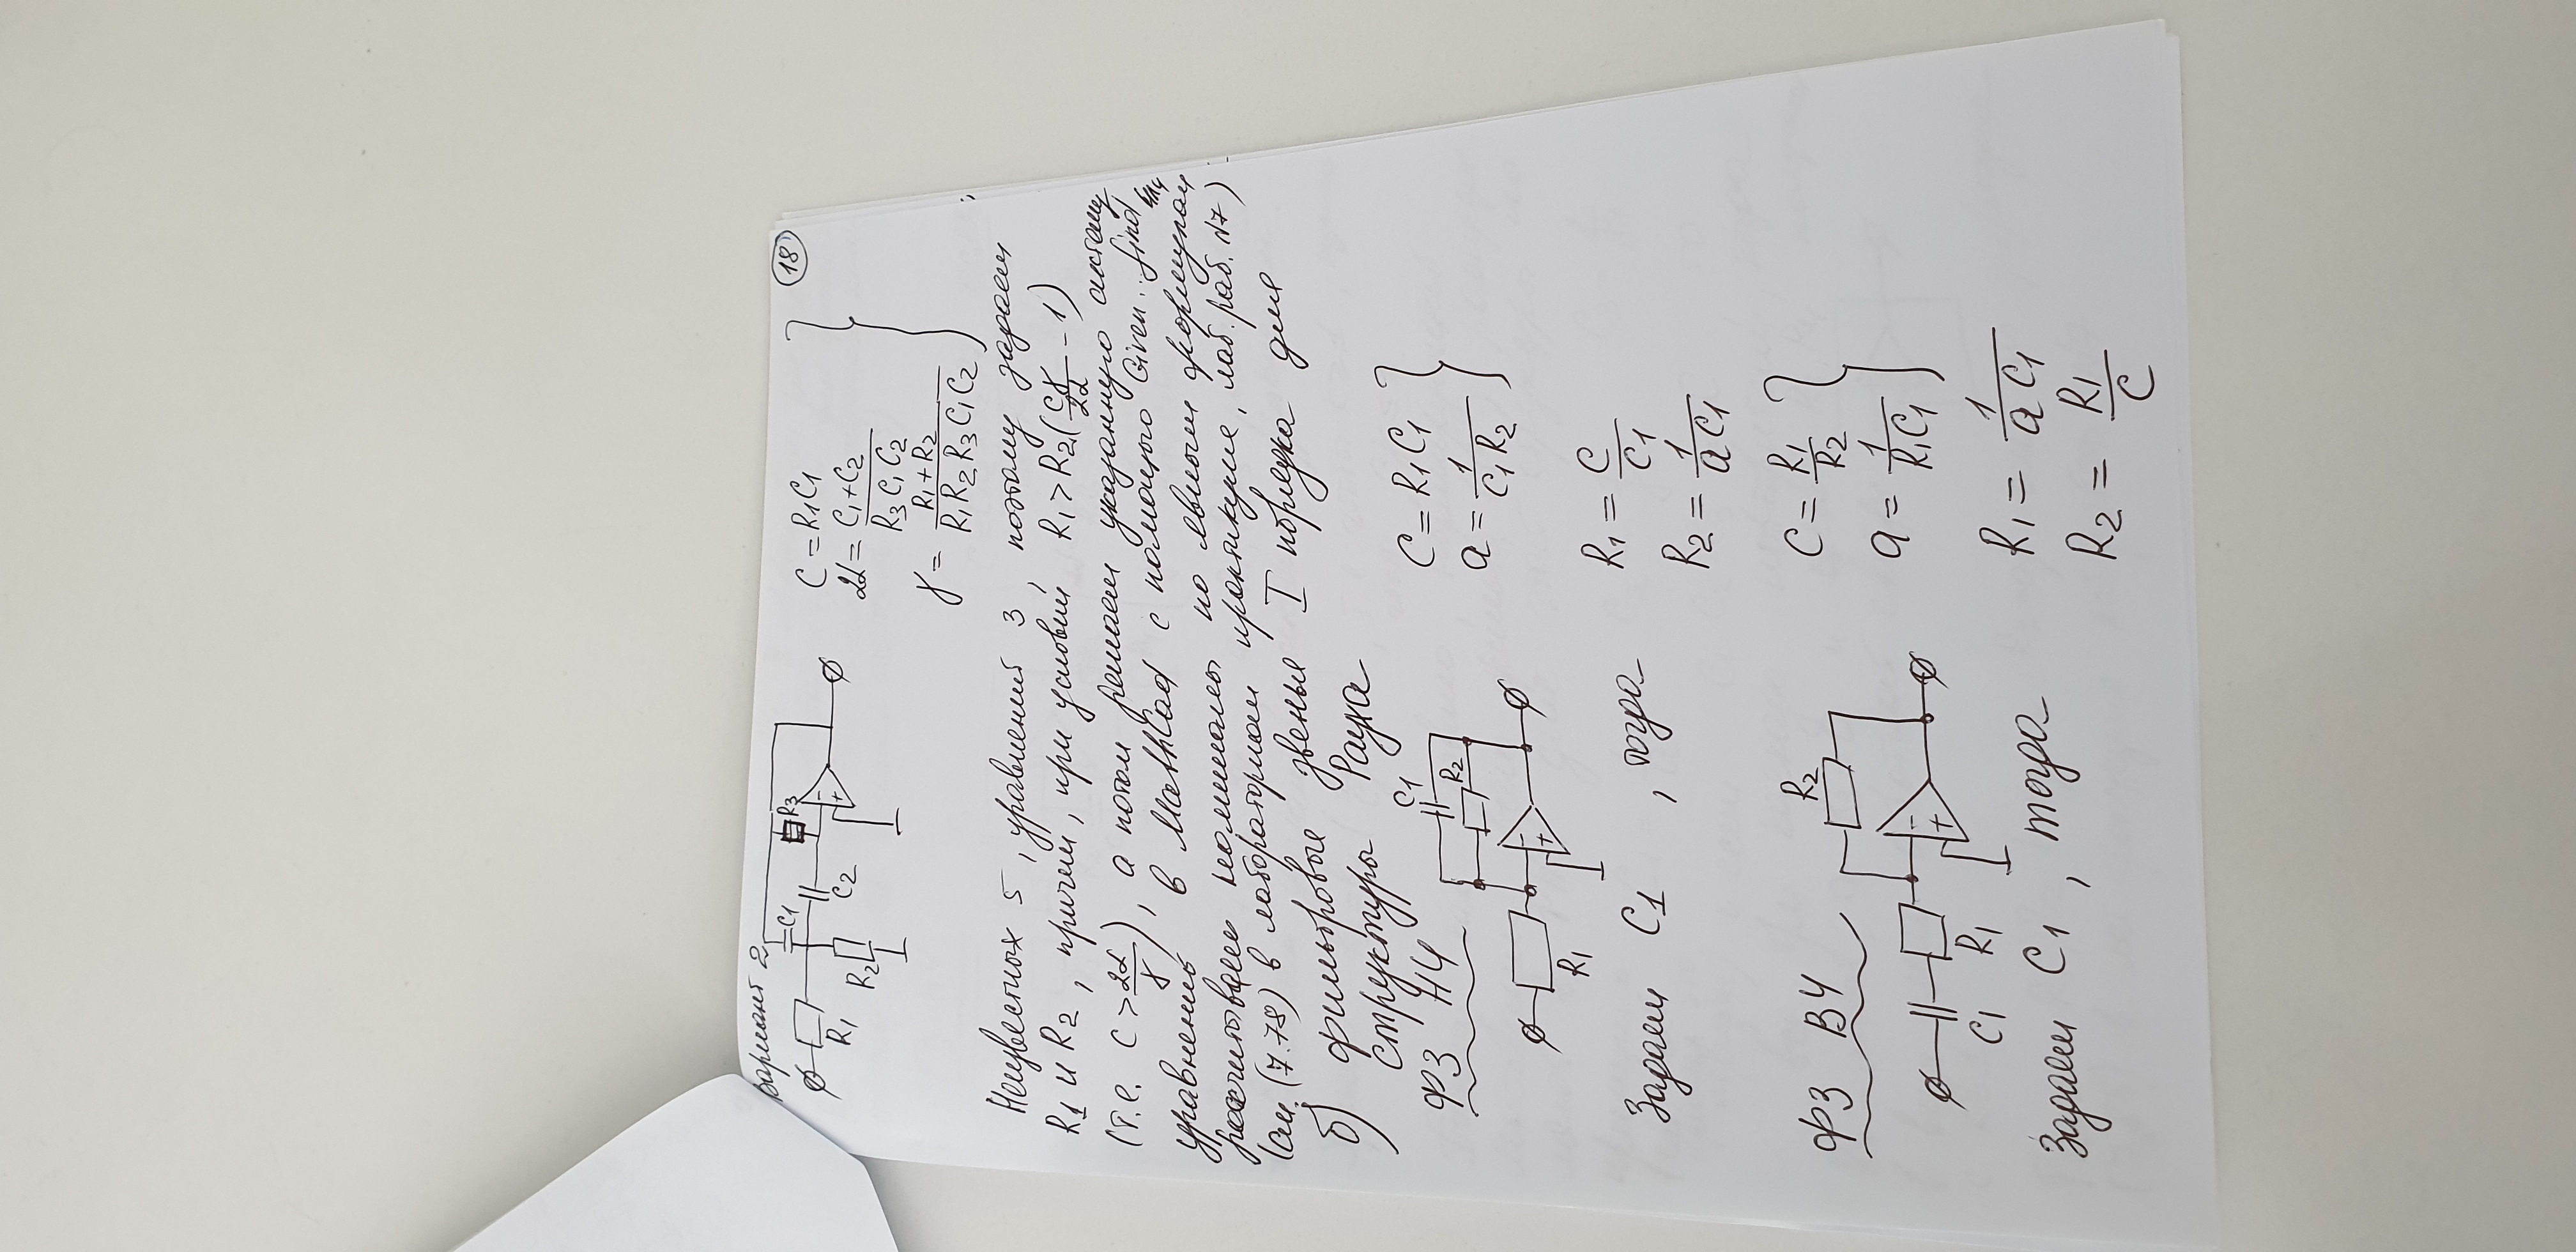 Вариант 2
18
C1
R3
R1
R2
C2
−
+
C = R1C1
2α = (C1+C2)/(R3C1C2)
γ = (R1+R2)/(R1R2R3C1C2)
Неизвестных 5, уравнений 3, поэтому задаем
R1 и R2, причем, при условии R1 > R2(cγ/2α − 1)
(т.е. C > 2α/γ), а потом решаем указанную систему
уравнений в MathCad с помощью Given..find или
рассчитываем номиналы по явным формулам
(см. (7.78) в лабораторном практикуме, лаб. раб. №7)
б) фильтровые звенья I порядка для
структуры Рауха
ФЗ НЧ
C1
R2
R1
−
+
C = R1C1
a = 1/(C1R2)
Задаем C1, тогда
R1 = C/C1
R2 = 1/(aC1)
ФЗ ВЧ
R2
C1
R1
−
+
C = R1/R2
a = 1/(R1C1)
Задаем C1, тогда
R1 = 1/(aC1)
R2 = R1/C